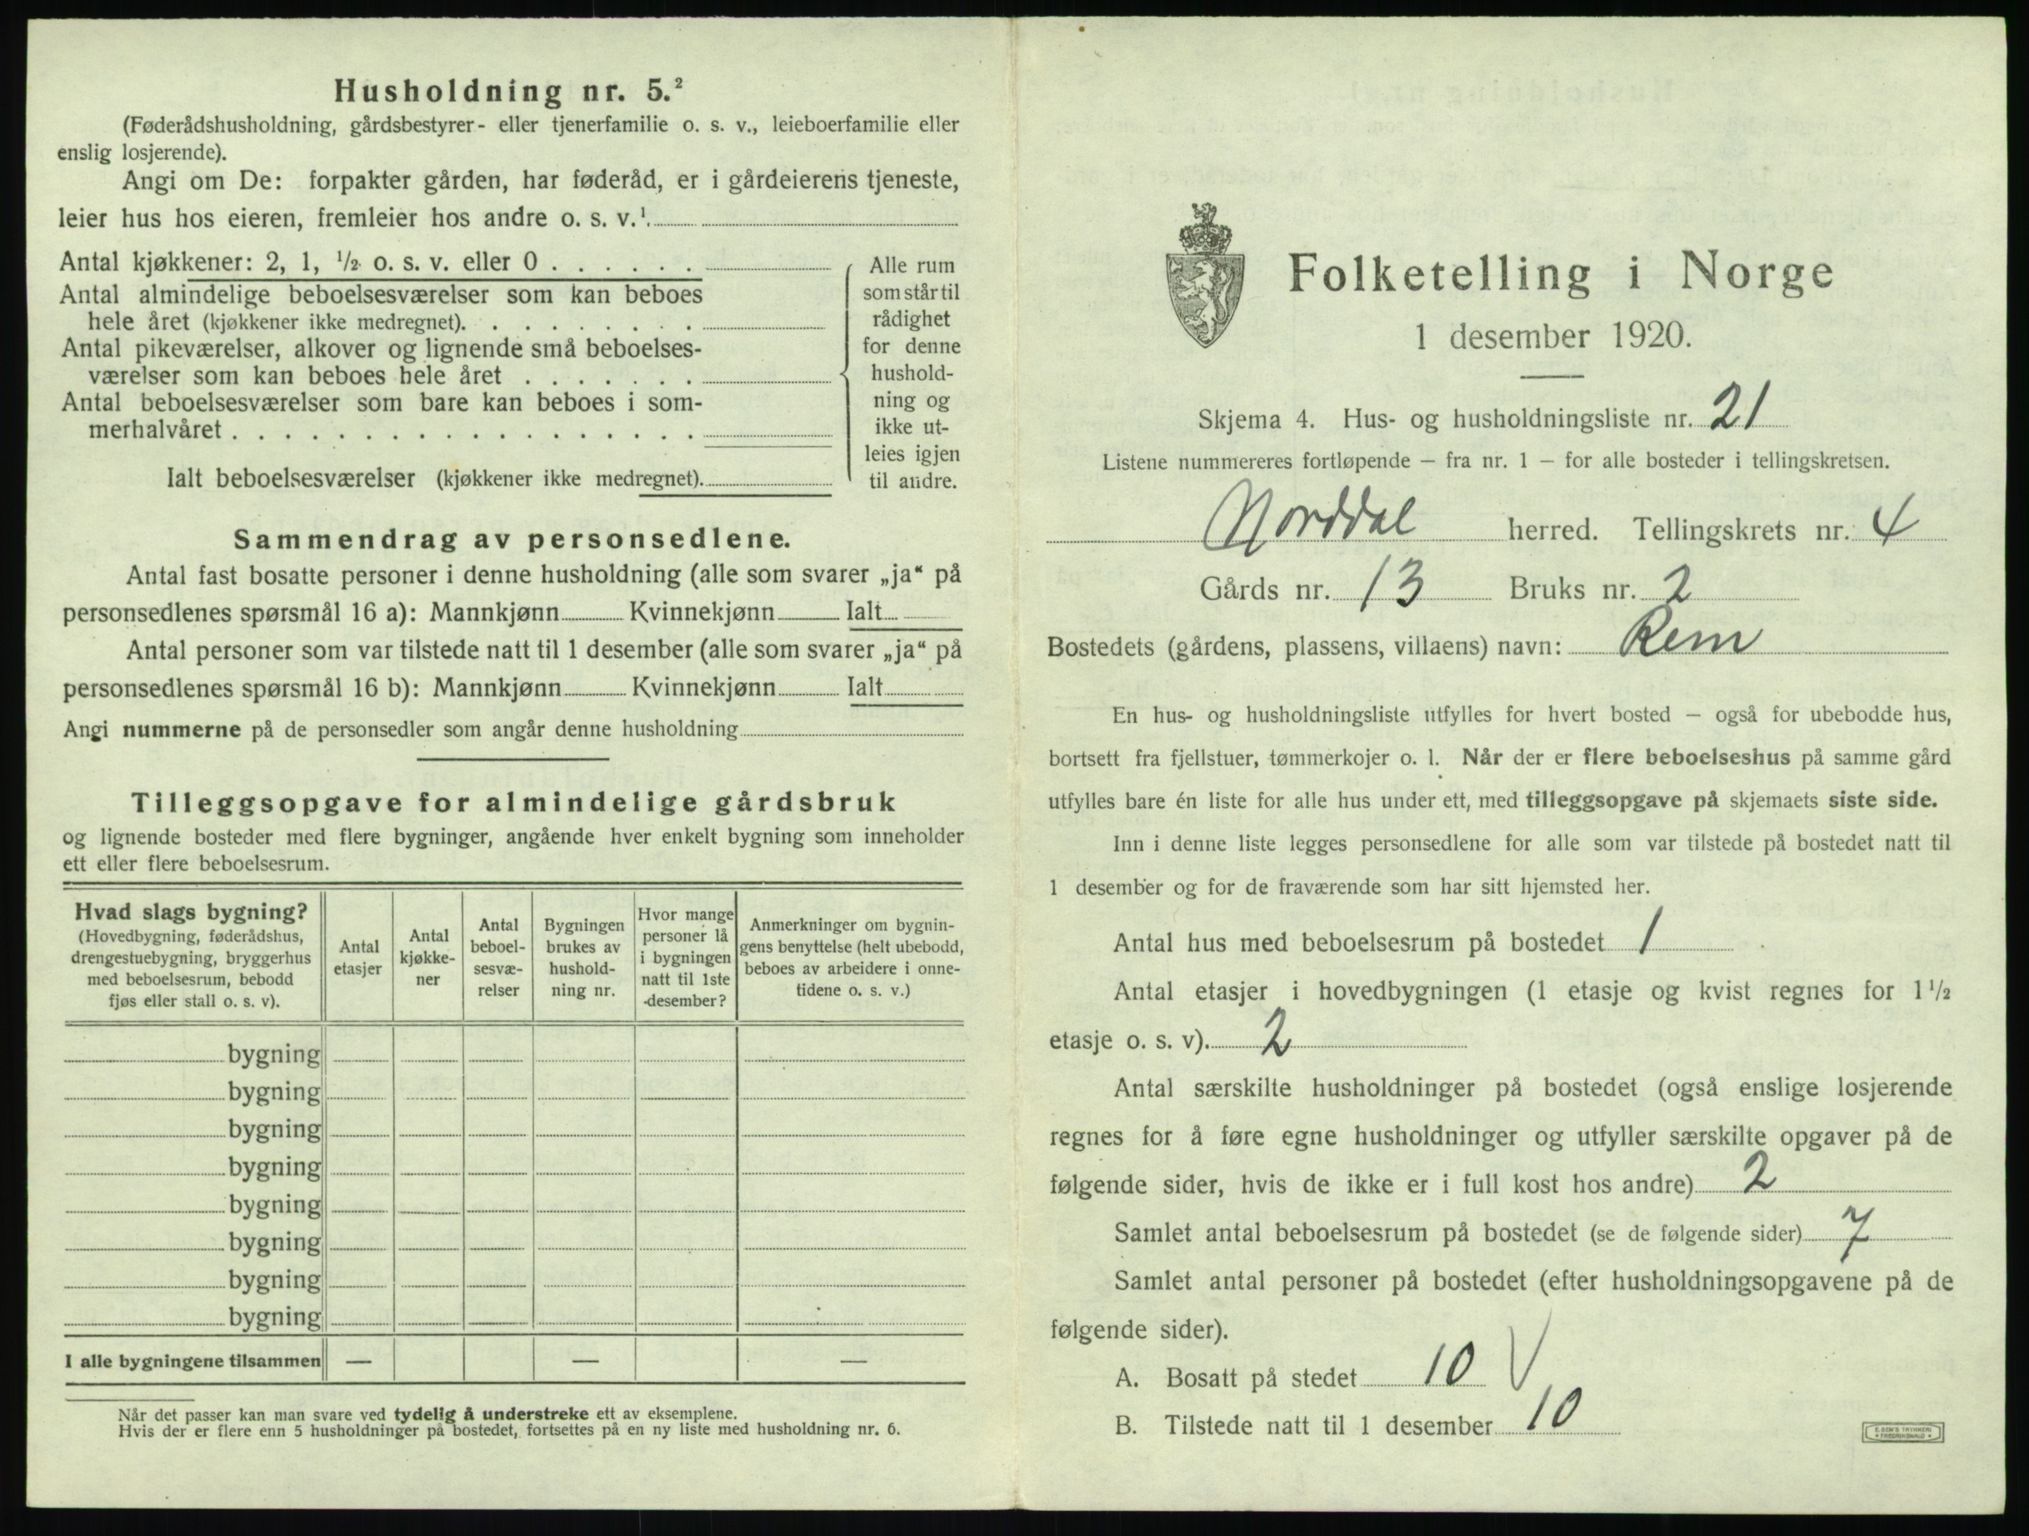 Husholdning nr. 5.²
(Føderådshusholdning, gårdsbestyrer- eller tjenerfamilie o. s. v., leieboerfamilie eller
enslig losjerende).
Angi om De: forpakter gården, har føderåd, er i gårdeierens tjeneste,
leier hus hos eieren, fremleier hos andre o. s. v.¹
Antal kjøkkener: 2, 1, 1/2 o. s. v. eller 0 . . . . . .
Antal almindelige beboelsesværelser som kan beboes
hele året (kjøkkener ikke medregnet). . . . . . . . .
Antal pikeværelser, alkover og lignende små beboelses-
værelser som kan beboes hele året . . . . . . .
Antal beboelsesværelser som bare kan beboes i som-
merhalvåret . . . . . . . . . . . . . . . . . .
Ialt beboelsesværelser (kjøkkener ikke medregnet).
Alle rum
som står til
rådighet
for denne
hushold-
ning og
ikke ut-
leies igjen
til andre.
Sammendrag av personsedlene.
Antal fast bosatte personer i denne husholdning (alle som svarer „ja“ på
personsedlenes spørsmål 16 a): Mannkjønn Kvinnekjønn Ialt
Antal personer som var tilstede natt til 1 desember (alle som svarer „ja“ på
personsedlenes spørsmål 16 b): Mannkjønn Kvinnekjønn Ialt
Angi nummerne på de personsedler som angår denne husholdning
Tilleggsopgave for almindelige gårdsbruk
og lignende bosteder med flere bygninger, angående hver enkelt bygning som inneholder
ett eller flere beboelsesrum.
Hvad slags bygning?
(Hovedbygning, føderådshus,
drengestuebygning, bryggerhus
med beboelsesrum, bebodd
fjøs eller stall o. s. v).
Antal
etasjer
Antal
kjøkke-
ner
Antal
beboel-
sesvæ-
relser
Bygningen
brukes av
hushold-
ning nr.
Hvor mange
personer lå
i bygningen
natt til 1ste
desember?
Anmerkninger om bygnin-
gens benyttelse (helt ubebodd,
beboes av arbeidere i onne-
tidene o. s. v.)
bygning
bygning
bygning
bygning
bygning
bygning
bygning
bygning
I alle bygningene tilsammen — — —
Når det passer kan man svare ved tydelig å understreke ett av eksemplene.
Hvis der er flere enn 5 husholdninger på bostedet, fortsettes på en ny liste med husholdning nr. 6.
Folketelling i Norge
1 desember 1920.
Skjema 4. Hus- og husholdningsliste nr. 21
Listene nummereres fortløpende — fra nr. 1 — for alle bosteder i tellingskretsen.
Norddal herred. Tellingskrets nr. 4
Gårds nr. 13 Bruks nr. 2
Bostedets (gårdens, plassens, villaens) navn: Rem
En hus- og husholdningsliste utfylles for hvert bosted — også for ubebodde hus,
bortsett fra fjellstuer, tømmerkojer o. l. Når der er flere beboelseshus på samme gård
utfylles bare én liste for alle hus under ett, med tilleggsopgave på skjemaets siste side.
Inn i denne liste legges personsedlene for alle som var tilstede på bostedet natt til
1 desember og for de fraværende som har sitt hjemsted her.
Antal hus med beboelsesrum på bostedet 1
Antal etasjer i hovedbygningen (1 etasje og kvist regnes for 1 1/2
etasje o. s. v). 2
Antal særskilte husholdninger på bostedet (også enslige losjerende
regnes for å føre egne husholdninger og utfyller særskilte opgaver på de
følgende sider, hvis de ikke er i full kost hos andre) 2
Samlet antal beboelsesrum på bostedet (se de følgende sider) 7
Samlet antal personer på bostedet (efter husholdningsopgavene på de
følgende sider).
A. Bosatt på stedet 10 V
B. Tilstede natt til 1 desember 10